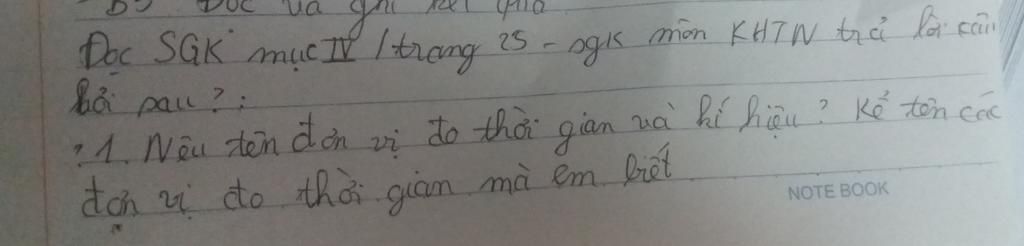 B3 Đọc và ghi kết quả
Đọc SGK mục IV / trang 25 - sgk môn KHTN trả lời câu
hỏi sau?:
?1. Nêu tên đơn vị đo thời gian và kí hiệu? Kể tên các
đơn vị đo thời gian mà em biết
NOTE BOOK